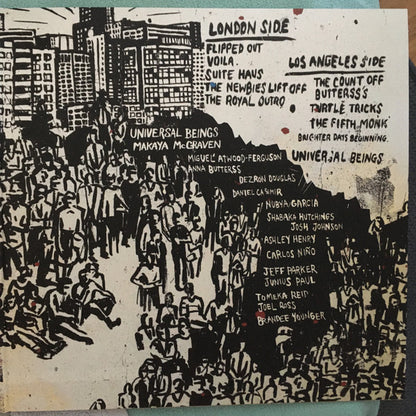 LONDON SIDE
FLIPPED OUT
VOILA
SUITE HAUS
THE NEWBIES LIFT OFF
THE ROYAL OUTRO
LOS ANGELES SIDE
THE COUNT OFF
BUTTERSS'S
TURTLE TRICKS
THE FIFTH MONK
BRIGHTER DAYS BEGINNING
UNIVERSAL BEINGS
UNIVERSAL BEINGS
MAKAYA McCRAVEN
MIGUEL ATWOOD-FERGUSON
ANNA BUTTERSS
DEZRON DOUGLAS
DANIEL CASIMIR
NUBYA GARCIA
SHABAKA HUTCHINGS
JOSH JOHNSON
ASHLEY HENRY
CARLOS NIÑO
JEFF PARKER
JUNIUS PAUL
TOMEKA REID
JOEL ROSS
BRANDEE YOUNGER